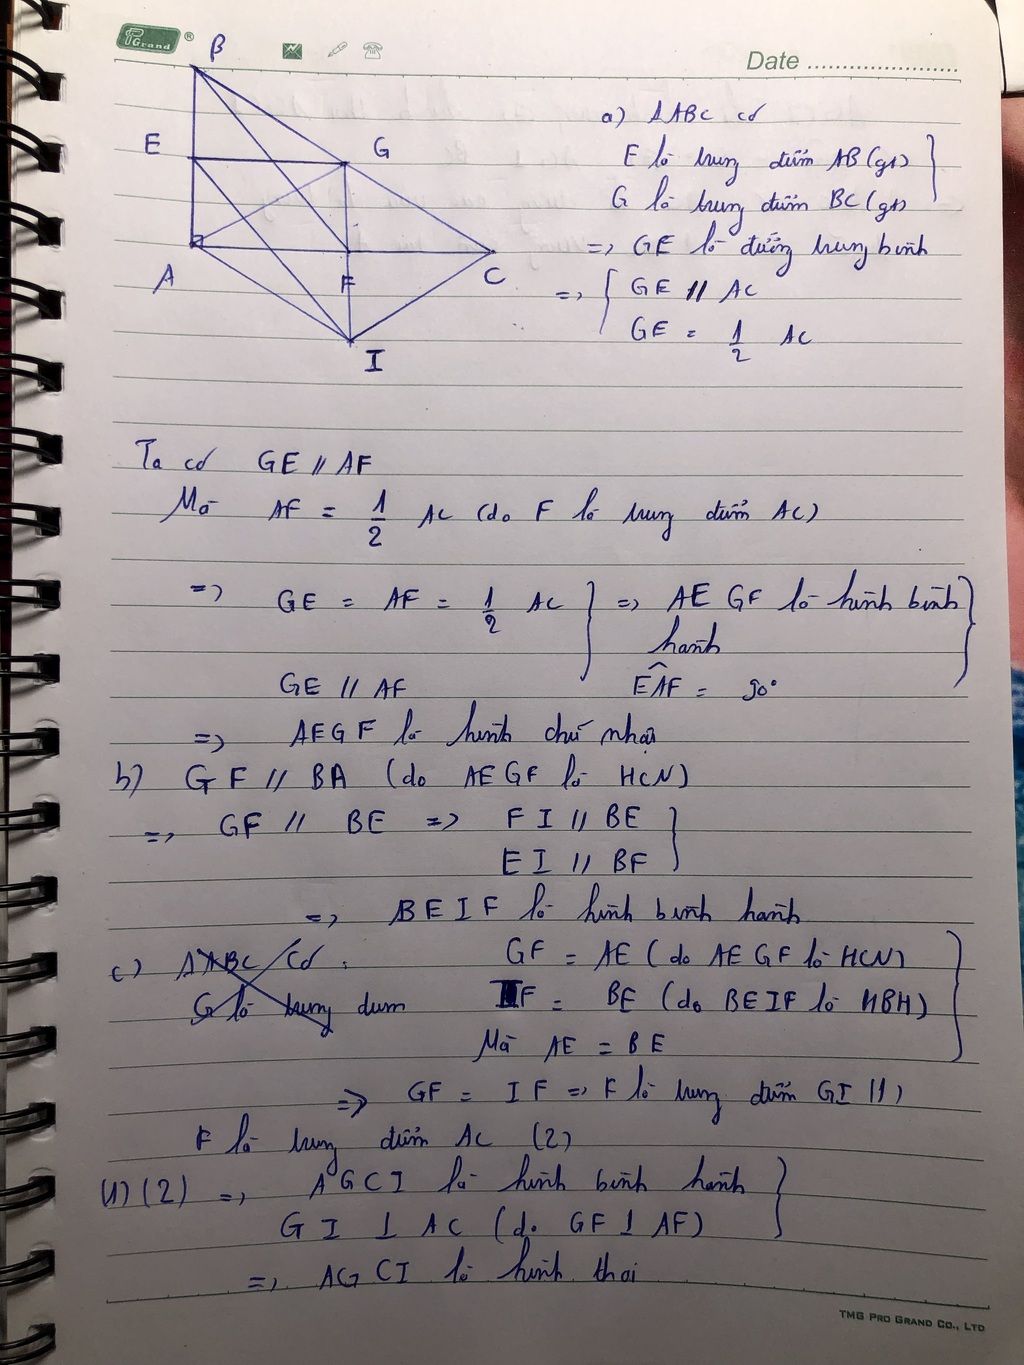 PGrand ®
Date
B
E
G
A
F
C
I
a) ΔABC có
E là trung điểm AB (gt)
G là trung điểm BC (gt)
=> GE là đường trung bình
=> GE // AC
GE = 1/2 AC
Ta có GE // AF
Mà AF = 1/2 AC (do F là trung điểm AC)
=> GE = AF = 1/2 AC } => AEGF là hình bình
hành
GE // AF
EAF = 90°
=> AEGF là hình chữ nhật
b) GF // BA (do AEGF là HCN)
=> GF // BE => FI // BE
EI // BF
=> BEIF là hình bình hành
c) ΔABC có :
G là trung điểm
GF = AE (do AEGF là HCN)
IF = BE (do BEIF là HBH)
Mà AE = BE
=> GF = IF => F là trung điểm GI (1)
F là trung điểm AC (2)
(1) (2) => AGCI là hình bình hành
GI ⊥ AC (do GF ⊥ AF)
=> AGCI là hình thoi
TMG PRO GRAND CO., LTD